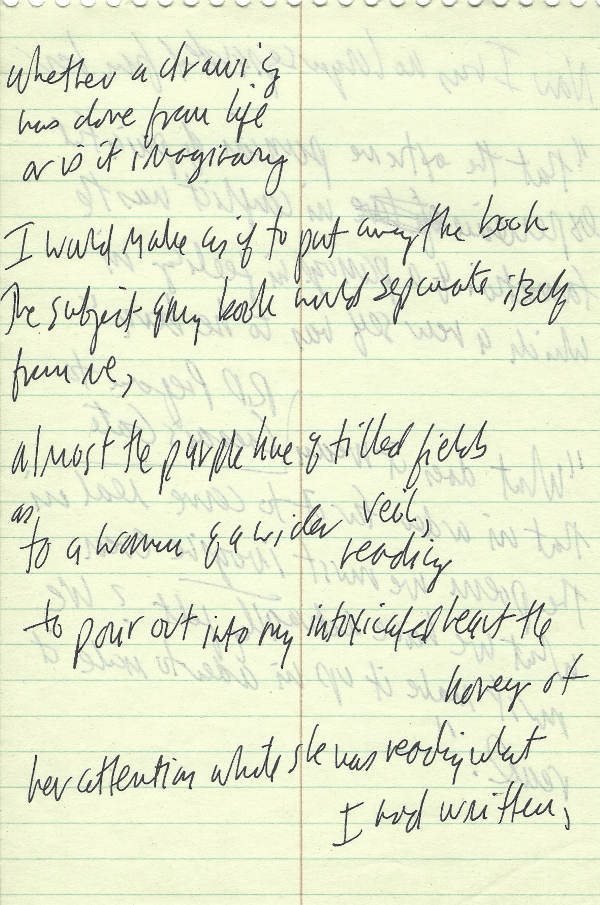 whether a drawing
was done from life
or is it imaginary
I would make as if to put away the book
The subject of my book would separate itself
from me,
almost the purple hue of tilled fields
as
to a woman of a wider veil,
reading
to pour out into my intoxicated heart the
honey of
her attention while she was reading what
I had written,